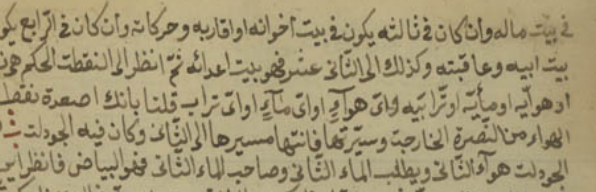 في بيت ماله وان كان في ثالثه يكون في بيت اخوانه او اقاربه وحركاته وان كان في الرابع يكو
بيت ابيه وعاقبته وكذلك الى الثاني عشر فهو بيت اعدائه ثم انظر الى النقطت الحكم هي
او هوايه او مأيه او ترابيه واى هوآءٍ اواى مآءٍ اواى تراب قلنا بانك اصعدة نقطـ
الهوا من النصرة الخارجة وسيرتها فانتها مسيرها الى الثاني وكان فيه الجودلت
الجودلت هوآء الثاني ويطلب الماء الثاني وصاحب الماء الثاني فهو البياض فانظر اين